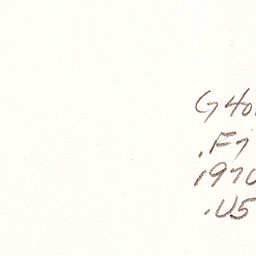 G40
.F7
1970
.U5